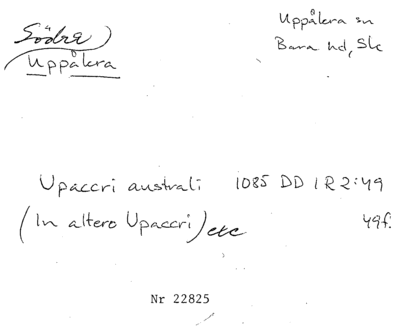 Södra)
Uppåkra
Uppåkra sn
Bara hd, Sk
Upaccri australi 1085 DD 1 R 2:49
(In altero Upaccri) etc 49f.
Nr 22825